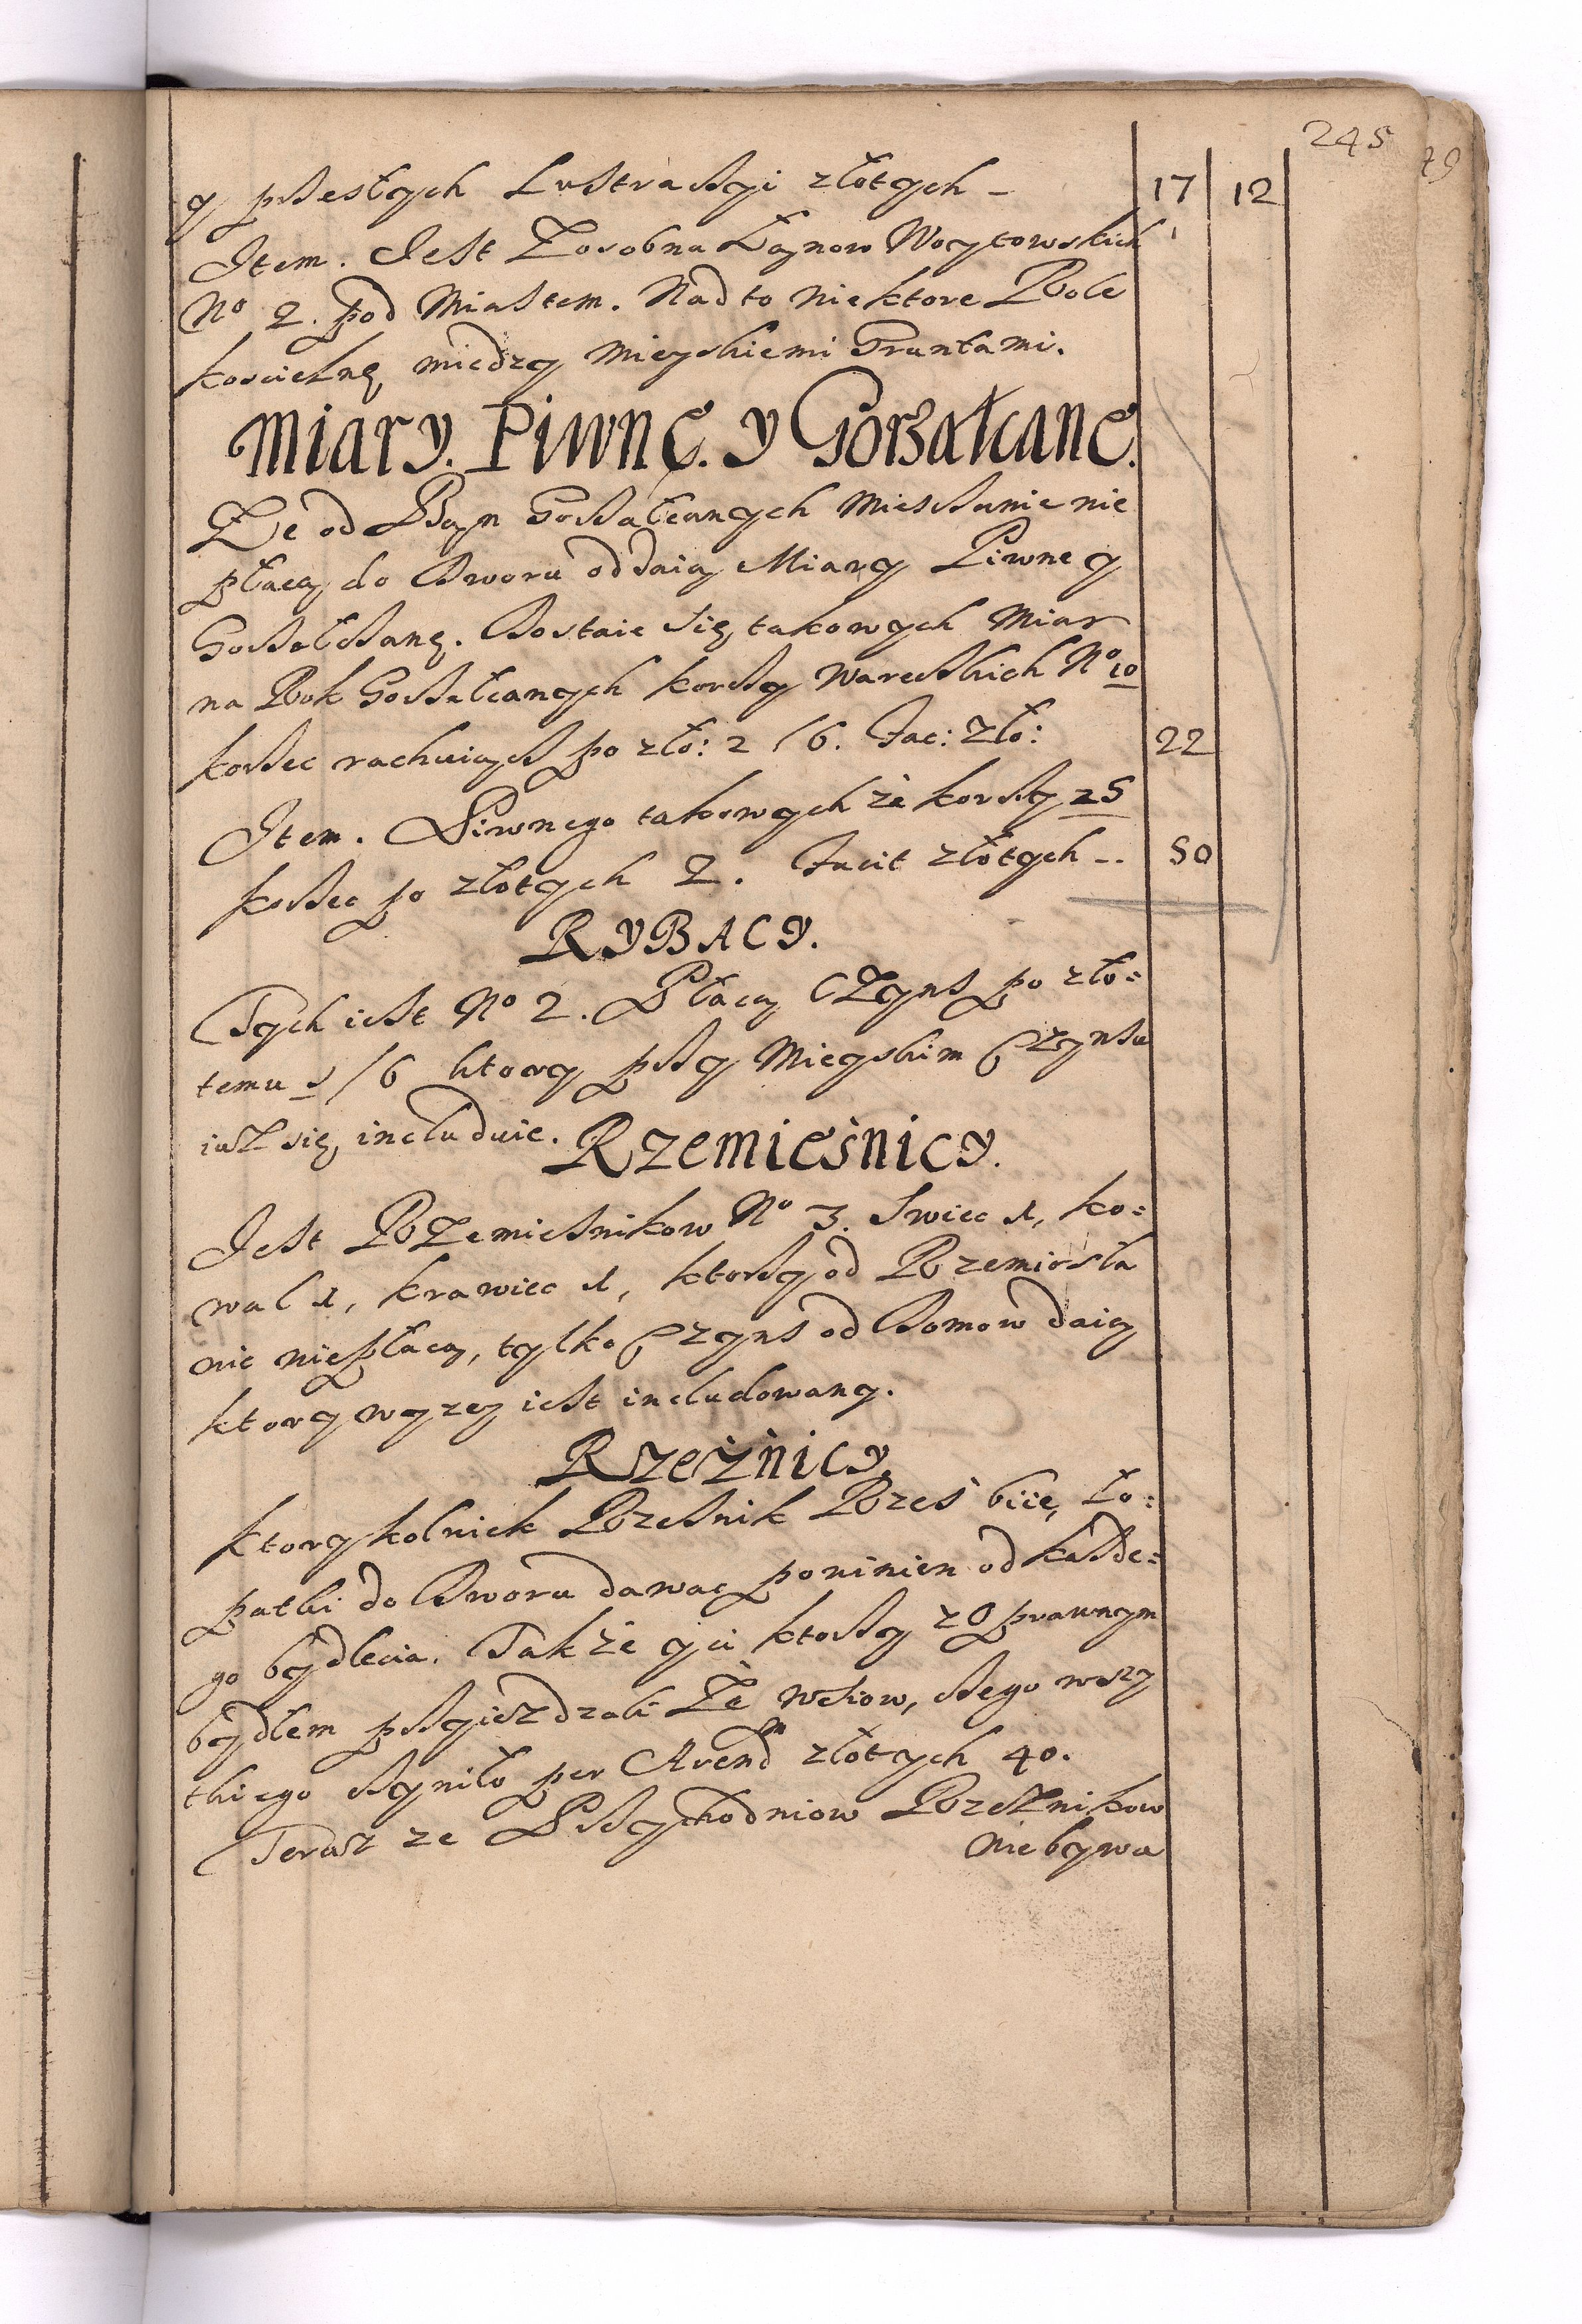 245
y przeszłych Lustraczyi złotych – 17 12
Item. Jest Zosobna Łaynow Woytowskich
No 2. pod Miastem. Nad to niektore Role
koscielnę między Mieyskiemi Gruntami.
Miary. Piwnę. y Gorzałcane.
Że od Bayn Gorzałcanych Mieszczanie nie
płacą, do Dworu oddaią Miary Piwne y
Gorzałczanę. Dostaie się takowych Miar
na Rok Gorzałcanych korcy Wareckich No 10
korzec rachuiącz po zło: 2 /6. Fac: zło: 22
Item. Piwnego takowych że korcy 25
korzec po złotych 2. Facit złotych -. 50
RYBACY.
Tych iest No 2. Płacą CZyns po zło=
temu 1 /6 ktory przy Mieyskim Czynszu
iusz się includuie. Rzemieśnicy.
Jest RZemiesnikow No 3. Swiec 1, ko=
wal 1, krawiec 1, ktorzy od Rzemiosła
nic niepłacą, tylko Czyns od Domow daią
ktory wyzey iest includowany.
Rzeźnicy.
Ktorykolwiek Rzesnik Rzeź biie, ło=
patki do Dworu dawac powinien od kazde=
go bydlecia. Także y ci ktorzy z Oprawnym
bydłem przyiezdzali Że Wsiow, czego wszy
tkiego czyniło per Arendm złotych 40.
Terasz ze Przychodniow RzeZnikow
niebywa